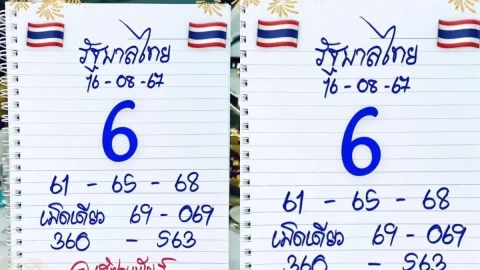 รัฐบาลไทย
16-08-67
6
61 - 65 - 68
เม็ดเดียว 69 - 069
360 - 563
รัฐบาลไทย
16-08-67
6
61 - 65 - 68
เม็ดเดียว 69 - 069
360 - 563